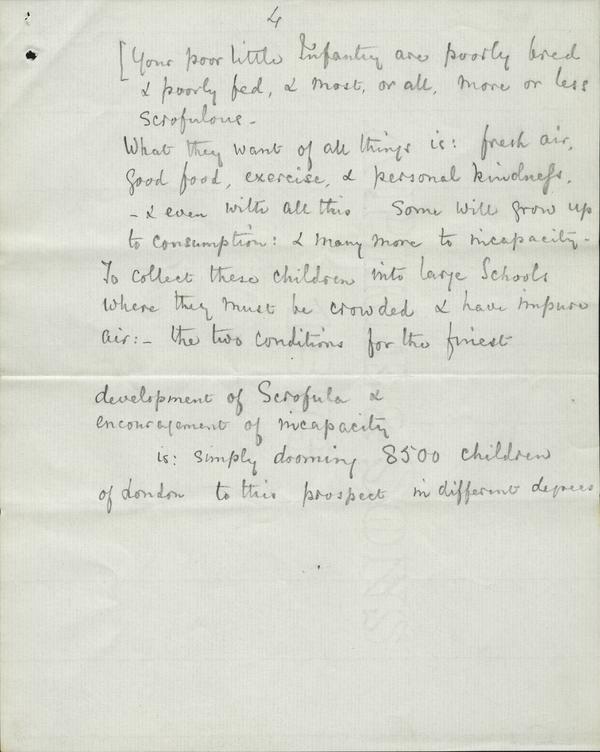 4
[Your poor little Infantry are poorly bred
& poorly fed, & most, or all, more or less
scrofulous -
What they want of all things is: fresh air,
good food, exercise, & personal kindness.
- & even with all this some will grow up
to consumption: & many more to incapacity -
To collect these children into large Schools
where they must be crowded & have impure
air: - the two conditions for the finest
development of Scrofula &
encouragement of incapacity
is: simply dooming 8500 children
of London to this prospect in different degrees